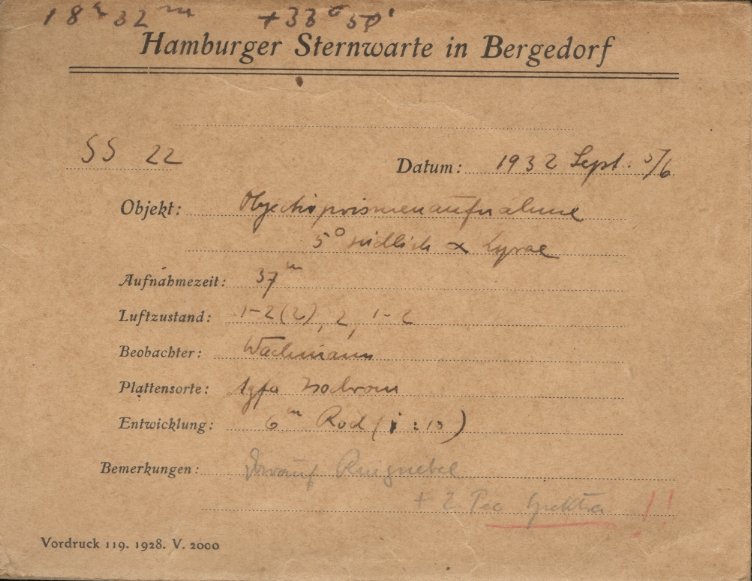 18h 32m +33° 50'
Hamburger Sternwarte in Bergedorf
SS 22
Datum: 1932 Sept. 5/6
Objekt: Objectivprismenaufnahme
5° südlich α Lyrae
Aufnahmezeit: 37m
Luftzustand: 1-2(2), 2, 1-2
Beobachter: Wachmann
Plattensorte: Agfa Isochrom
Entwicklung: 6m Rod (1:15)
Bemerkungen: Darauf Ringnebel
+ 2 Pec Spektra !!
Vordruck 119. 1928. V. 2000